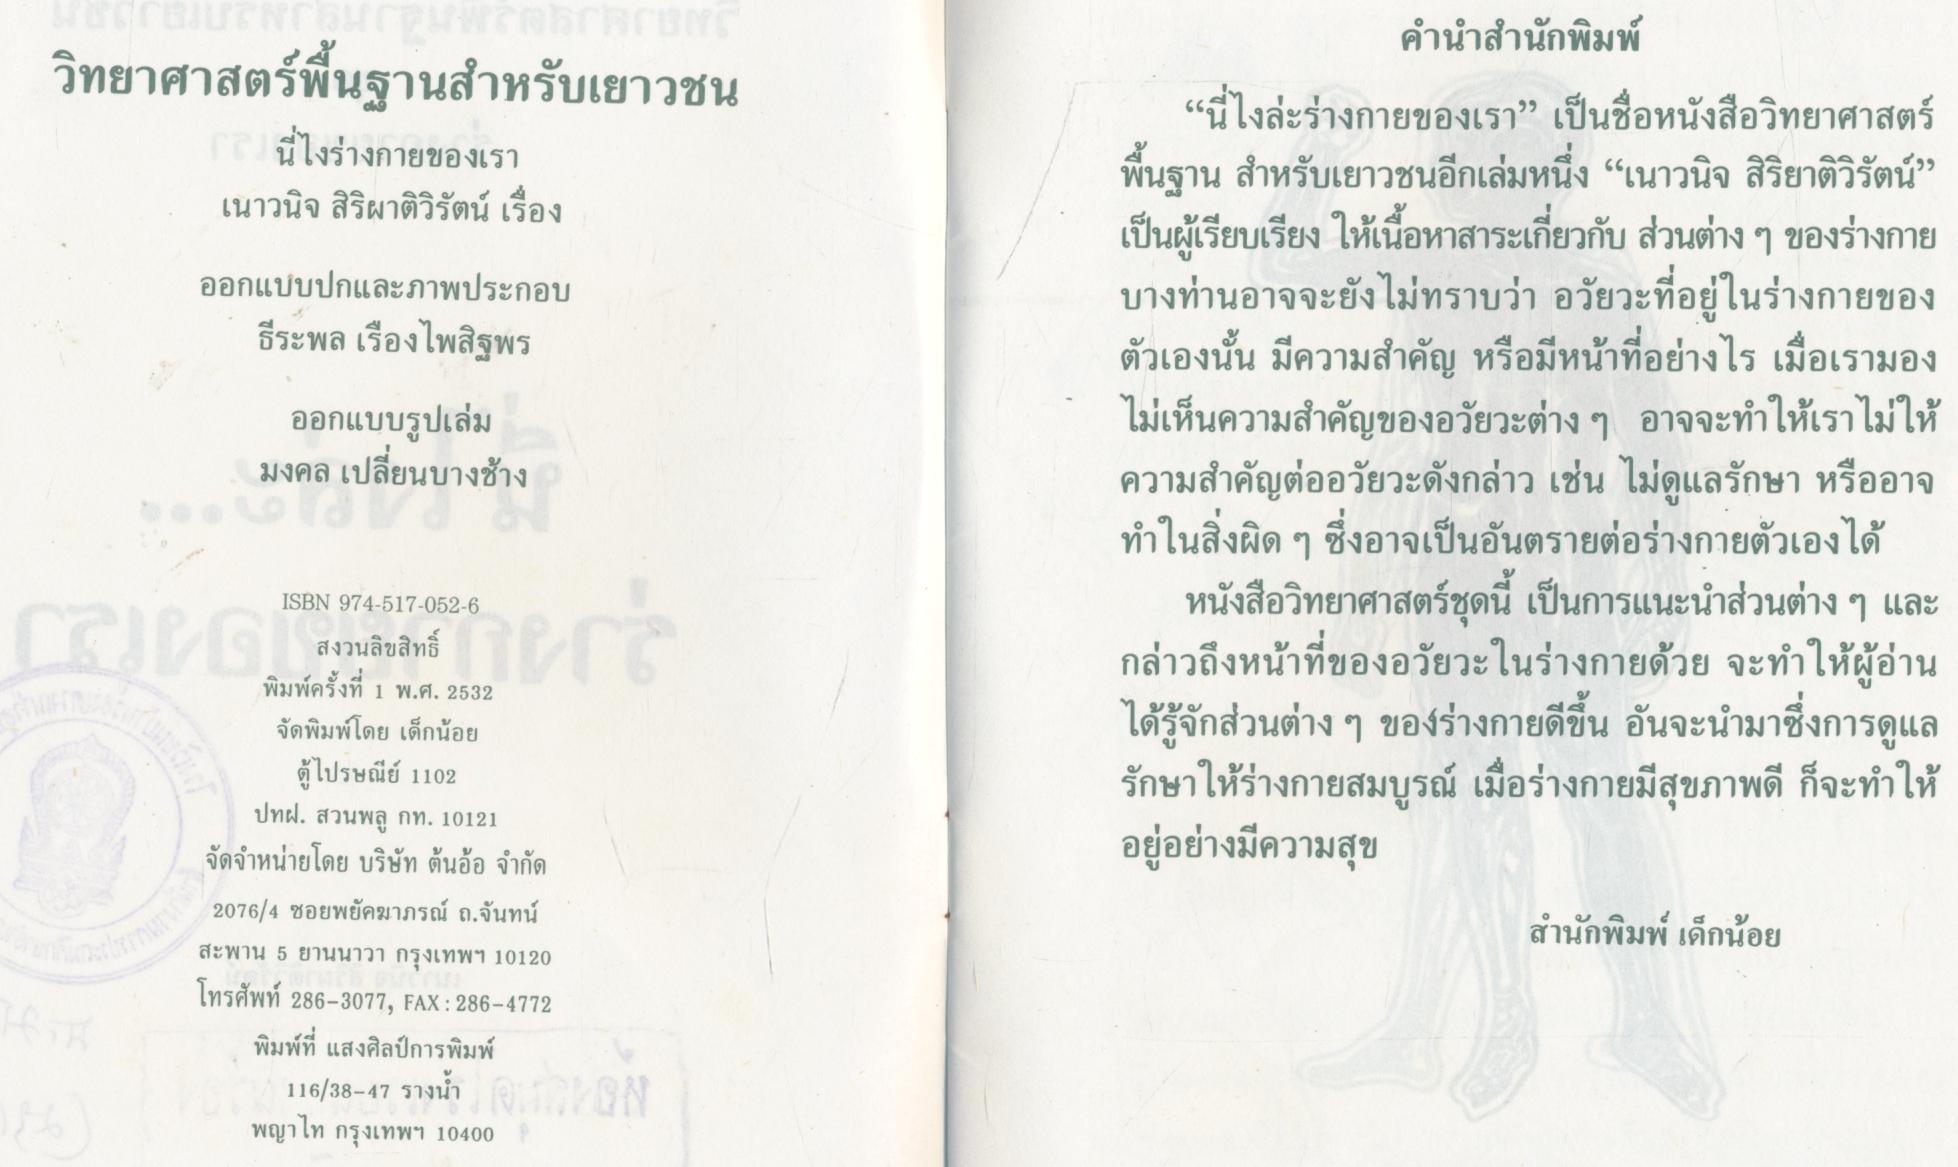 วิทยาศาสตร์พื้นฐานสำหรับเยาวชน
นี่ไงร่างกายของเรา
เนาวนิจ สิริผาติวิรัตน์ เรื่อง
ออกแบบปกและภาพประกอบ
ธีระพล เรืองไพสิฐพร
ออกแบบรูปเล่ม
มงคล เปลี่ยนบางช้าง
ISBN 974-517-052-6
สงวนลิขสิทธิ์
พิมพ์ครั้งที่ 1 พ.ศ. 2532
จัดพิมพ์โดย เด็กน้อย
ตู้ไปรษณีย์ 1102
ปทฝ. สวนพลู กท. 10121
จัดจำหน่ายโดย บริษัท ต้นอ้อ จำกัด
2076/4 ซอยพยัคฆาภรณ์ ถ.จันทน์
สะพาน 5 ยานนาวา กรุงเทพฯ 10120
โทรศัพท์ 286-3077, FAX : 286-4772
พิมพ์ที่ แสงศิลป์การพิมพ์
116/38-47 รางน้ำ
พญาไท กรุงเทพฯ 10400
คำนำสำนักพิมพ์
“นี่ไงล่ะร่างกายของเรา” เป็นชื่อหนังสือวิทยาศาสตร์
พื้นฐาน สำหรับเยาวชนอีกเล่มหนึ่ง “เนาวนิจ สิริยาติวิรัตน์”
เป็นผู้เรียบเรียง ให้เนื้อหาสาระเกี่ยวกับ ส่วนต่าง ๆ ของร่างกาย
บางท่านอาจจะยังไม่ทราบว่า อวัยวะที่อยู่ในร่างกายของ
ตัวเองนั้น มีความสำคัญ หรือมีหน้าที่อย่างไร เมื่อเรามอง
ไม่เห็นความสำคัญของอวัยวะต่าง ๆ อาจจะทำให้เราไม่ให้
ความสำคัญต่ออวัยวะดังกล่าว เช่น ไม่ดูแลรักษา หรืออาจ
ทำในสิ่งผิด ๆ ซึ่งอาจเป็นอันตรายต่อร่างกายตัวเองได้
หนังสือวิทยาศาสตร์ชุดนี้ เป็นการแนะนำส่วนต่าง ๆ และ
กล่าวถึงหน้าที่ของอวัยวะในร่างกายด้วย จะทำให้ผู้อ่าน
ได้รู้จักส่วนต่าง ๆ ของร่างกายดีขึ้น อันจะนำมาซึ่งการดูแล
รักษาให้ร่างกายสมบูรณ์ เมื่อร่างกายมีสุขภาพดี ก็จะทำให้
อยู่อย่างมีความสุข
สำนักพิมพ์ เด็กน้อย